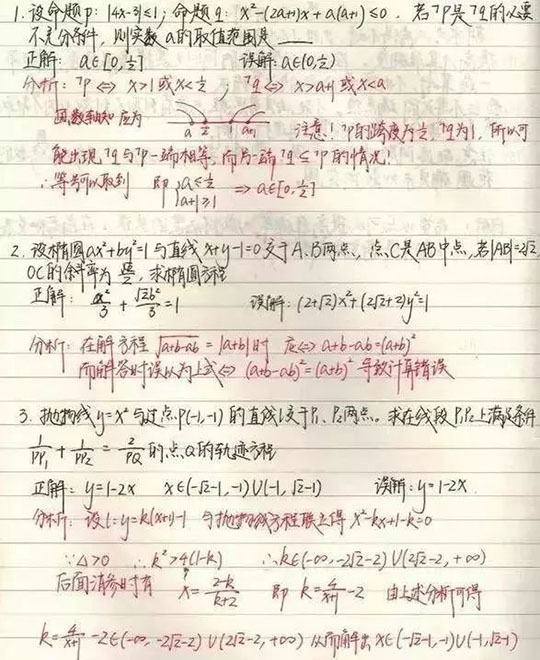 1. 设命题p: |4x-3|≤1; 命题q: x²-(2a+1)x+a(a+1)≤0. 若¬p是¬q的必要
不充分条件, 则实数a的取值范围是
正解: a∈[0,½] 误解: a∈(0,½)
分析: ¬p⇔x>1或x<½; ¬q⇔x>a+1或x<a
由数轴知应为 a ½ 1 a+1 注意! ¬p的跨度为½, ¬q为1, 所以可
能出现¬q与¬p一端相等, 而另一端¬q≤¬p的情况!
∴等号可以取到 即 {a≤½ a+1≥1 ⇒a∈[0,½]
2. 设椭圆ax²+by²=1与直线x+y-1=0交于A、B两点, 点C是AB中点, 若|AB|=2√2,
OC的斜率为√2/2, 求椭圆方程
正解: x²/3+√2y²/3=1 误解: (2+√2)x²+(2√2+2)y²=1
分析: 在解方程√(a+b-ab)=|a+b|时 应⇔a+b-ab=(a+b)²
而解答时误以为上式⇔(a+b-ab)²=(a+b)² 导致计算错误
3. 抛物线y=x²与过点P(-1,-1)的直线l交于P₁、P₂两点。求在线段P₁P₂上满足条件
1/PP₁+1/PP₂=2/PQ的点Q的轨迹方程
正解: y=1-2x x∈(-√2-1,-1)∪(-1,√2-1) 误解: y=1-2x
分析: 设l:y=k(x+1)-1 与抛物线方程联立得x²-kx+1-k=0
∵Δ>0 ∴k²>4(1-k) ∴k∈(-∞,-2√2-2)∪(2√2-2,+∞)
后面消参时有 x=(2-k)/(k+2) 即 k=4/(x+1)-2 由上述分析可得
k=4/(x+1)-2∈(-∞,-2√2-2)∪(2√2-2,+∞) 从而解出x∈(-√2-1,-1)∪(-1,√2-1)